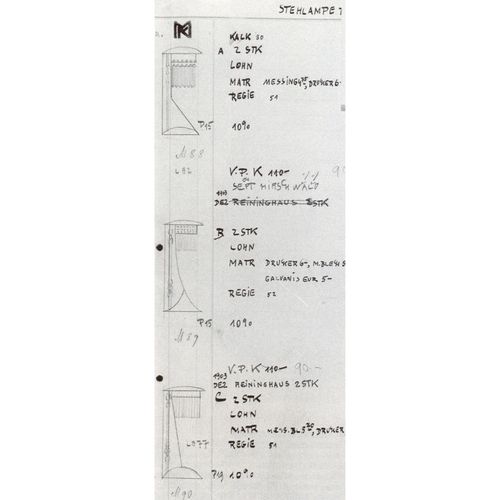 STEHLAMPE
KALK 50
A 2 STK
LOHN
MATR MESSING 4 35, DRUCKER 6-
REGIE 51
P15 10%
M 88
L 82 V.P. K 110-
SEPT HIRSCHWALD
1903
DEZ REININGHAUS 2 STK
B 2 STK
LOHN
MATR DRUCKER 6-, M.BLECH 5
GALVANISEUR 5-
REGIE 52
P15 10%
M 89
V.P. K 110- 90.-
1903
DEZ REININGHAUS 2 STK
C 2 STK
LOHN
MATR MESS. BL 5 20, DRUCKER
L 877 REGIE 51
P19 10%
M 90